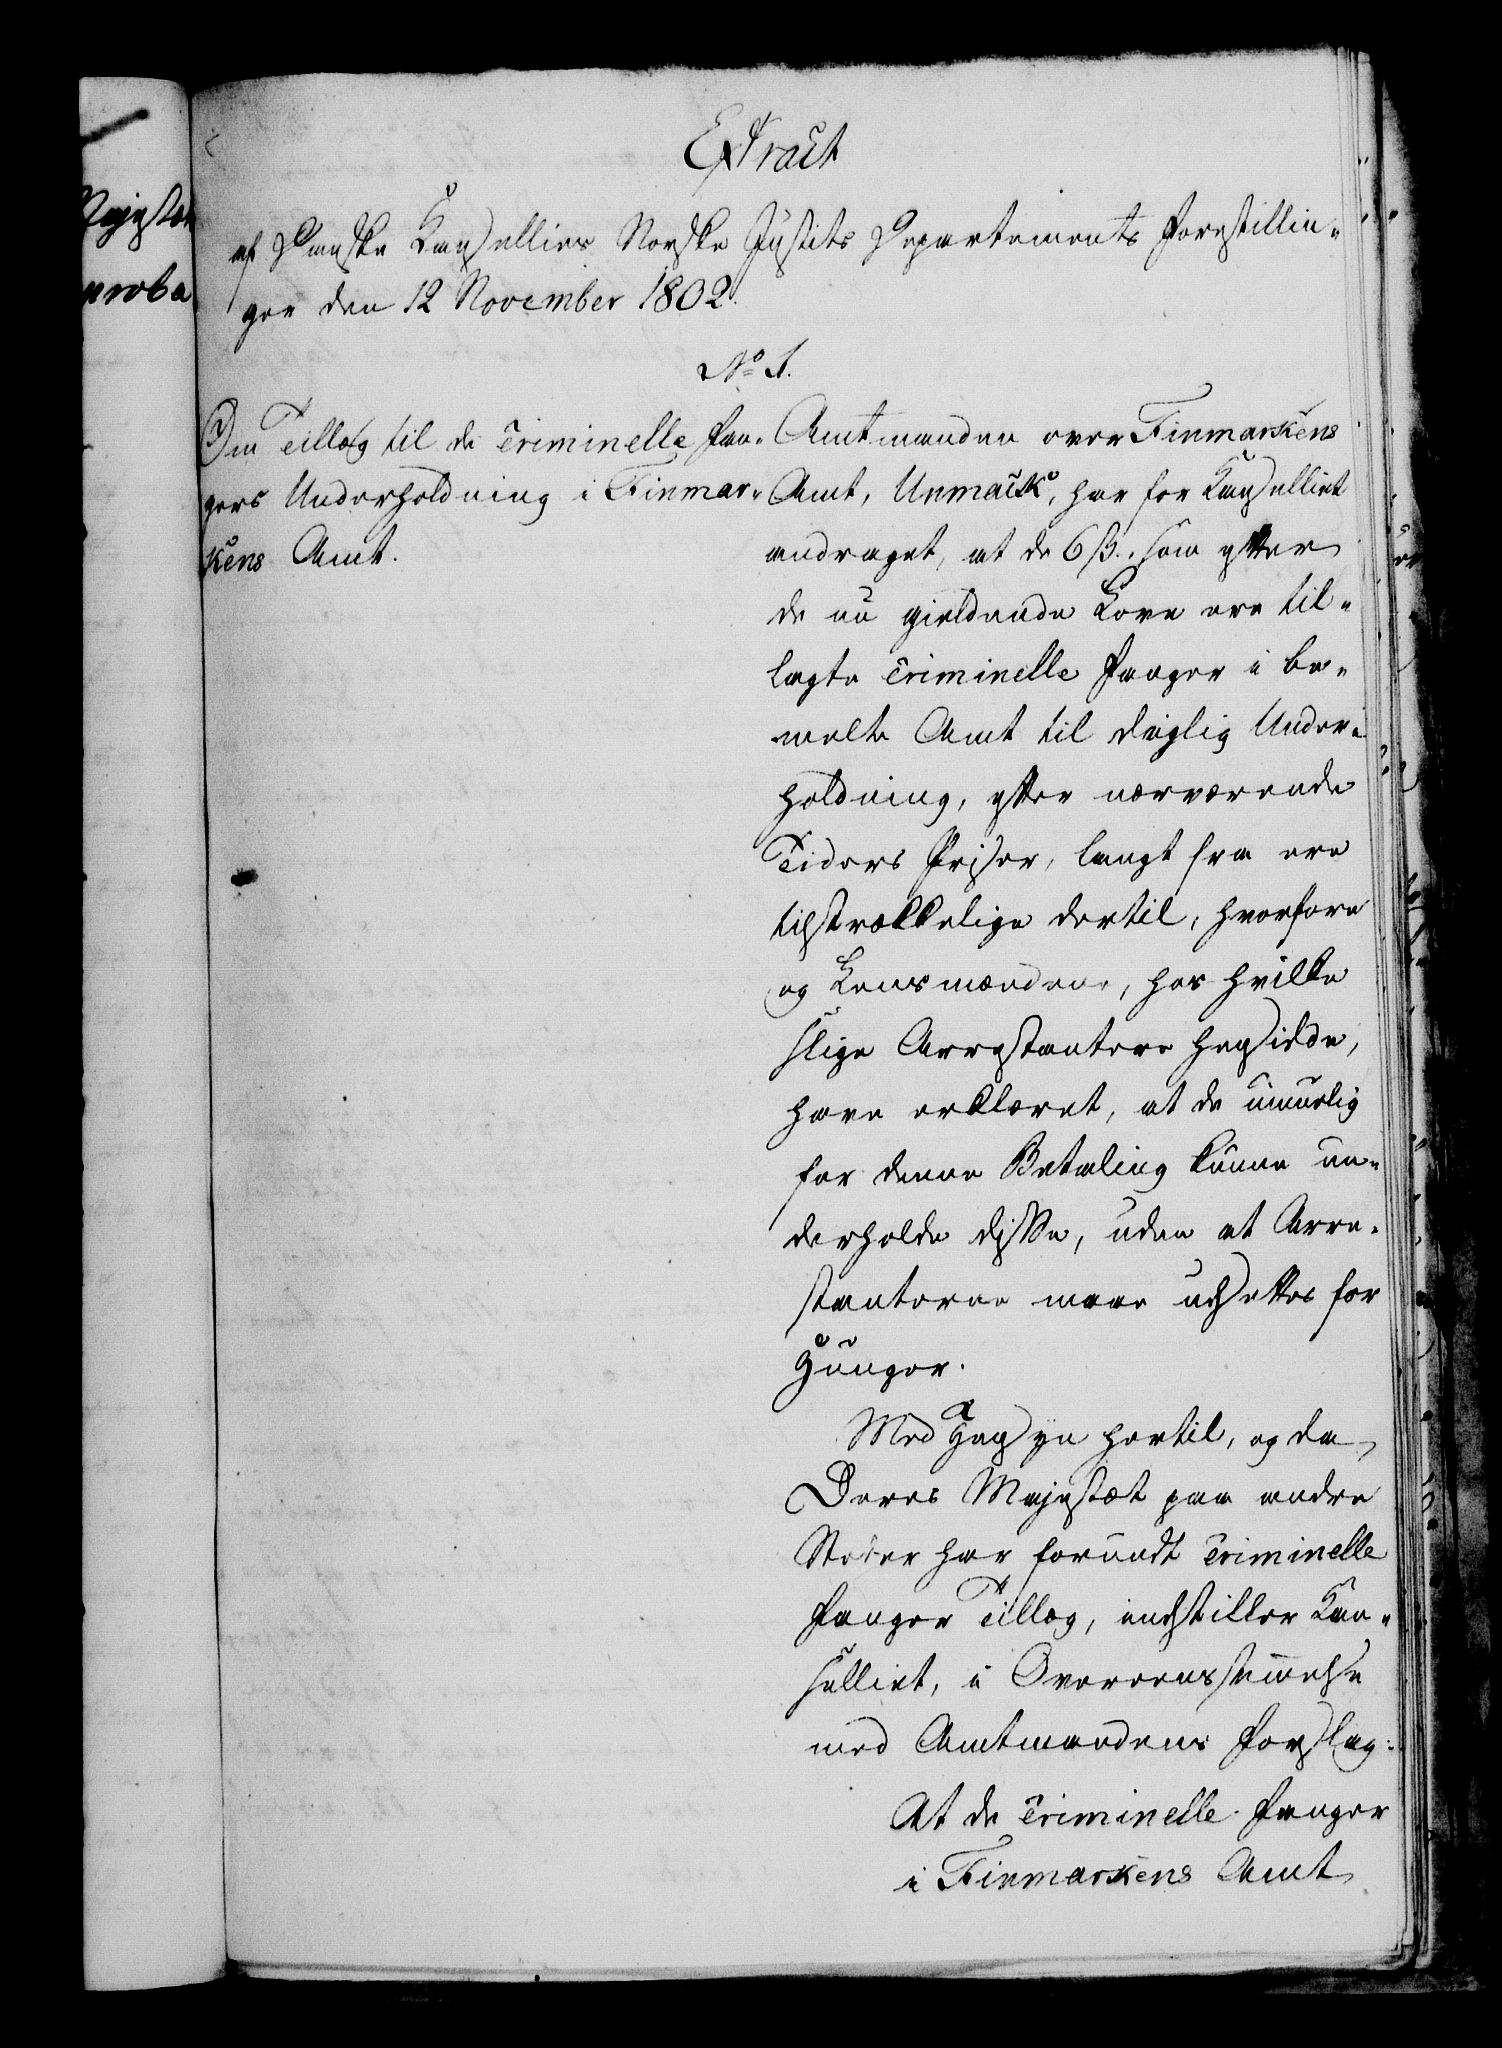 Extract
af Danske Cancelliets Norske Justits Departements Forestillin-
ger den 12 November 1802.
No 1.
Om Tillæg til de Criminelle Fan-
gers Underholdning i Finmar-
kens Amt.
Amtmanden over Finmarkens
Amt, Unmack, har for Cancelliet
andraget, at de 6 ß. som efter
de nu gieldende Love ere til-
lagte Criminelle Fanger i be-
meldte Amt til daglig Under-
holdning, efter nærværende
Tiders Priser, langt fra ere
tilstrækkelige dertil, hvorfore
og Lensmændene, hos hvilke
slige Arrestantere hensidde,
have erklæret, at de umuelig
for denne Betaling kunne un-
derholde disse, uden at Arre-
stanterne maae udsættes for
Hunger.
Med Hensyn hertil, og da
Deres Majestæt paa andre
Steder har forundt Criminelle
Fanger Tillæg, indstiller Can-
celliet, i Overeensstemmelse
med Amtmandens Forslag:
At de Criminelle Fanger
i Finmarkens Amt
Majestæt
proba